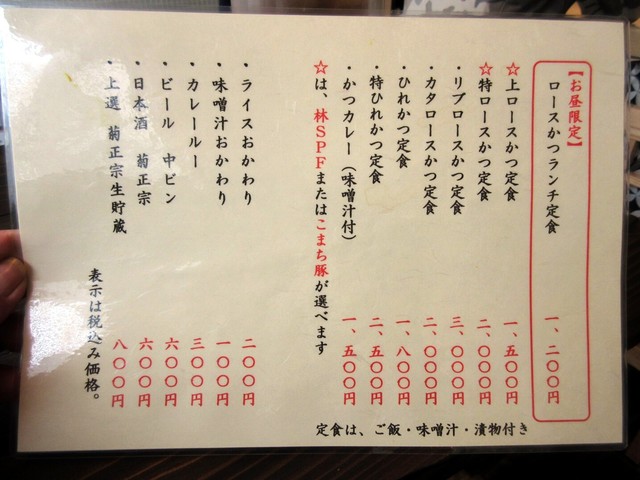 【お昼限定】
ロースかつランチ定食 一、二〇〇円
☆上ロースかつ定食 一、五〇〇円
☆特ロースかつ定食 二、〇〇〇円
・リブロースかつ定食 三、〇〇〇円
・カタロースかつ定食 二、〇〇〇円
・ひれかつ定食 一、八〇〇円
・特ひれかつ定食 二、五〇〇円
・かつカレー（味噌汁付） 一、五〇〇円
☆は、林SPFまたはこまち豚が選べます
定食は、ご飯・味噌汁・漬物付き
・ライスおかわり 二〇〇円
・味噌汁おかわり 一〇〇円
・カレールー 三〇〇円
・ビール 中ビン 六〇〇円
・日本酒 菊正宗 六〇〇円
・上選 菊正宗生貯蔵 八〇〇円
表示は税込み価格。